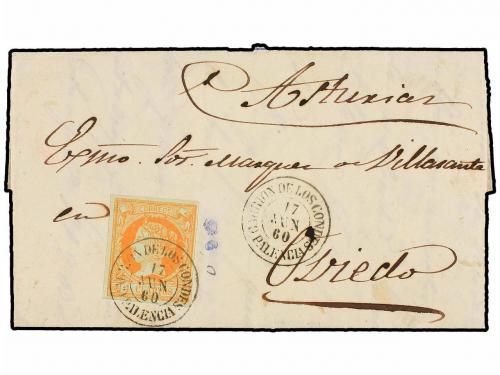 Asturias
Exmo. Sor. Marques de Villasante
en
CARRION DE LOS CONDES
17
JUN
60
PALENCIA
Oviedo
CORREOS
CARRION DE LOS CONDES
17
JUN
60
PALENCIA